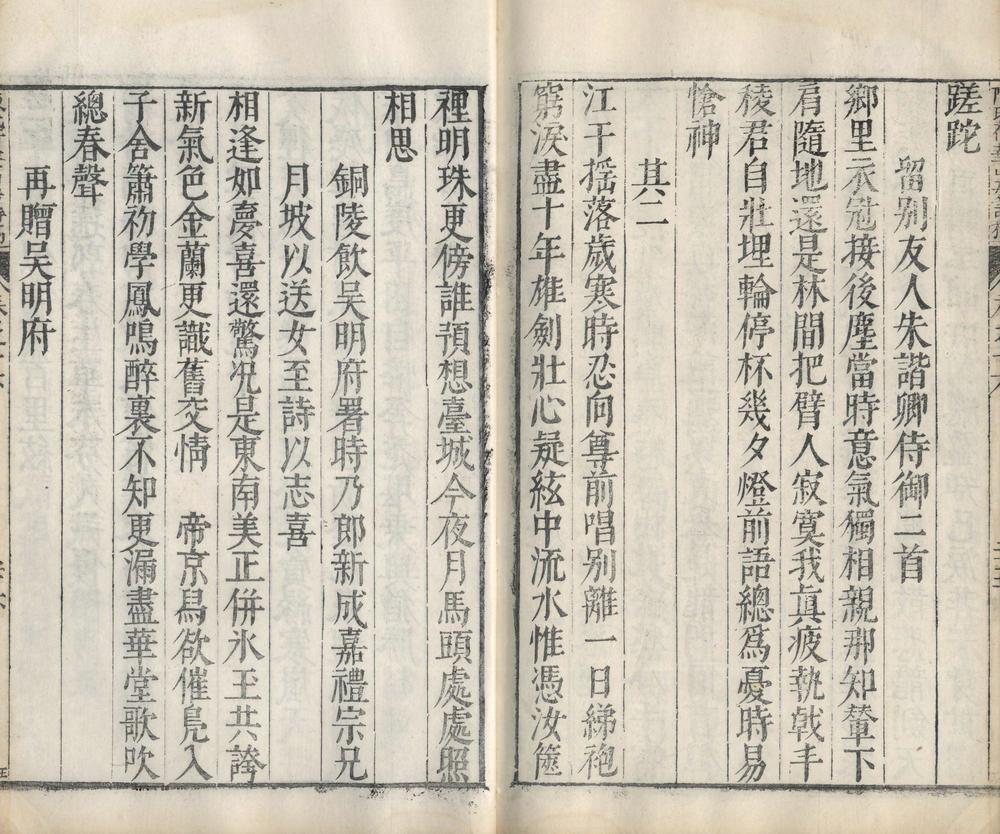 蹉跎
留別友人朱諧卿侍御二首
鄉里衣冠接後塵當時意氣獨相親那知輦下
肩隨地還是林間把臂人寂寞我真疲執戟丰
稜君自壯埋輪停杯幾夕燈前語總為憂時易
愴神
其二
江干搖落歲寒時忍向尊前唱別離一日綈袍
窮淚盡十年雄劍壯心疑絃中流水惟憑汝篋
裡明珠更傍誰預想臺城今夜月馬頭處處照
相思
銅陵飲吳明府署時乃郎新成嘉禮宗兄
月坡以送女至詩以志喜
相逢如夢喜還驚況是東南美正併氷玉共誇
新氣色金蘭更識舊交情　帝京舄欲催鳧入
子舍簫初學鳳鳴醉裏不知更漏盡華堂歌吹
總春聲
再贈吳明府